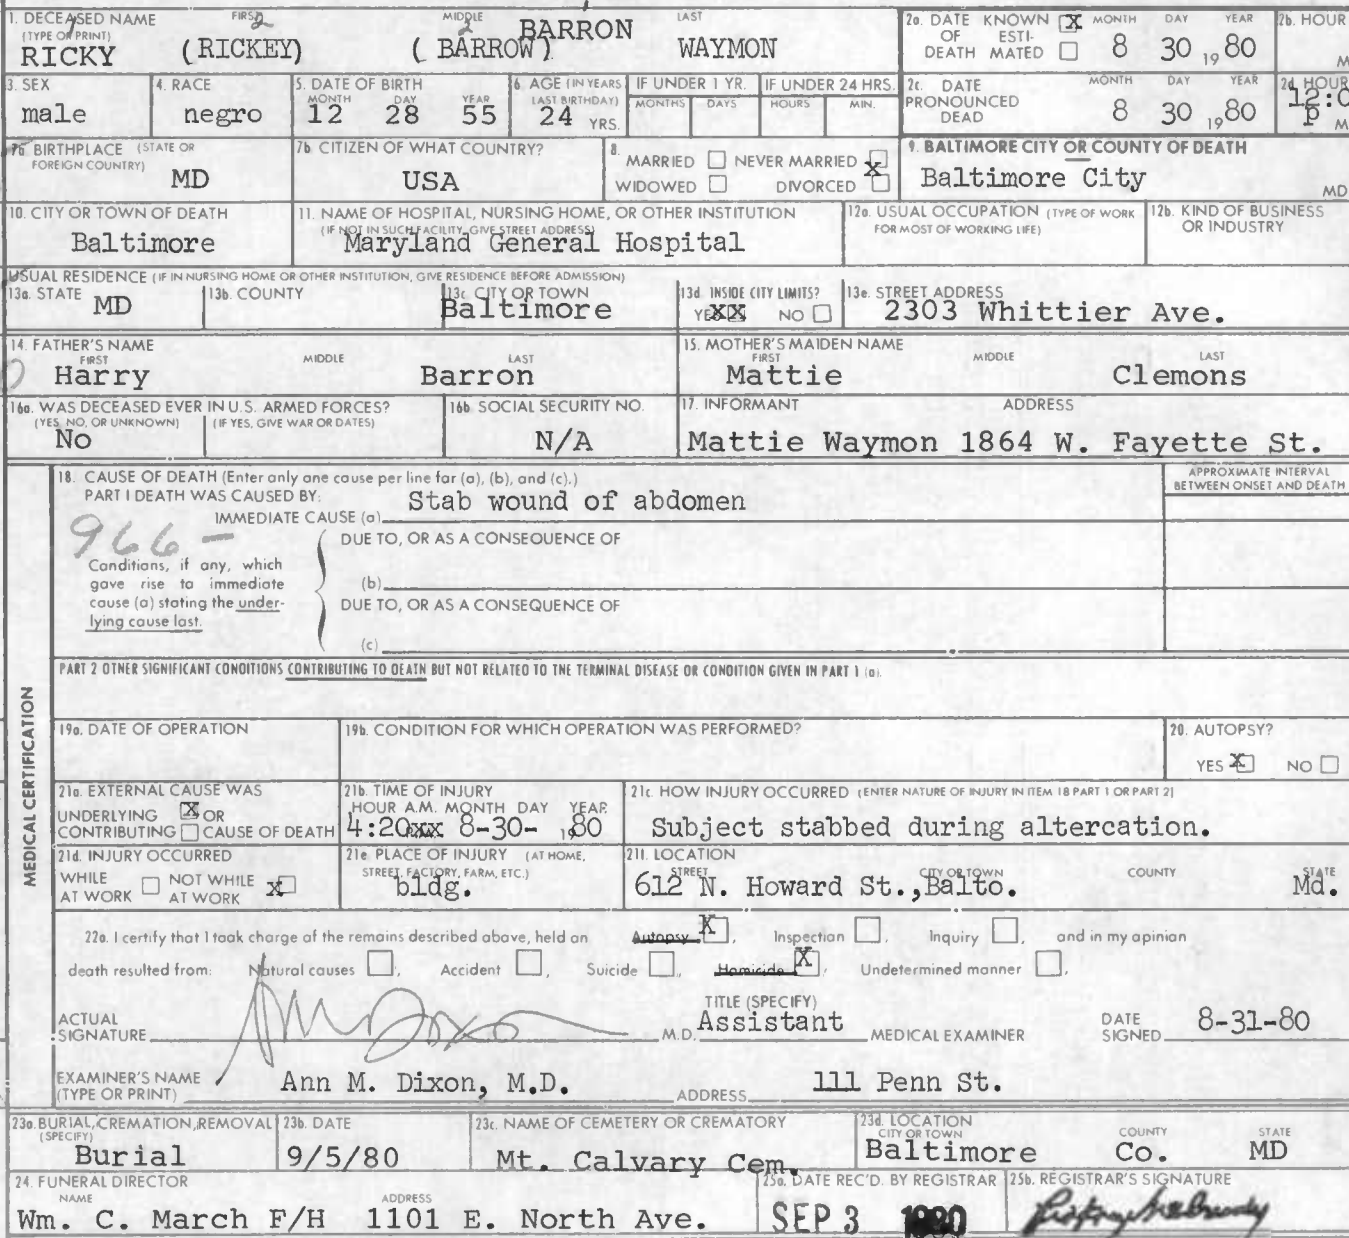 1. DECEASED NAME FIRST MIDDLE LAST
(TYPE OR PRINT)
1 2 2 1
RICKY (RICKEY) ( BARROW) BARRON WAYMON
2a. DATE KNOWN X MONTH DAY YEAR
OF ESTI-
DEATH MATED 8 30 19 80
2b. HOUR
M
3. SEX
male
4. RACE
negro
5. DATE OF BIRTH
MONTH DAY YEAR
12 28 55
6. AGE (IN YEARS
LAST BIRTHDAY)
24 YRS.
IF UNDER 1 YR.
MONTHS DAYS
IF UNDER 24 HRS.
HOURS MIN.
2c. DATE MONTH DAY YEAR
PRONOUNCED
DEAD 8 30 19 80
2d. HOUR
12:0
P M
7a. BIRTHPLACE (STATE OR
FOREIGN COUNTRY)
MD
7b. CITIZEN OF WHAT COUNTRY?
USA
8.
MARRIED NEVER MARRIED X
WIDOWED DIVORCED
9. BALTIMORE CITY OR COUNTY OF DEATH
Baltimore City
MD
10. CITY OR TOWN OF DEATH
Baltimore
11. NAME OF HOSPITAL, NURSING HOME, OR OTHER INSTITUTION
(IF NOT IN SUCH FACILITY, GIVE STREET ADDRESS)
Maryland General Hospital
12a. USUAL OCCUPATION (TYPE OF WORK
FOR MOST OF WORKING LIFE)
12b. KIND OF BUSINESS
OR INDUSTRY
USUAL RESIDENCE (IF IN NURSING HOME OR OTHER INSTITUTION, GIVE RESIDENCE BEFORE ADMISSION)
13a. STATE
MD
13b. COUNTY
13c. CITY OR TOWN
Baltimore
13d. INSIDE CITY LIMITS?
YES XX NO
13e. STREET ADDRESS
2303 Whittier Ave.
14. FATHER'S NAME
FIRST MIDDLE LAST
Harry Barron
15. MOTHER'S MAIDEN NAME
FIRST MIDDLE LAST
Mattie Clemons
16a. WAS DECEASED EVER IN U.S. ARMED FORCES?
(YES, NO, OR UNKNOWN) (IF YES, GIVE WAR OR DATES)
No
16b. SOCIAL SECURITY NO.
N/A
17. INFORMANT ADDRESS
Mattie Waymon 1864 W. Fayette St.
MEDICAL CERTIFICATION
18. CAUSE OF DEATH (Enter only one cause per line for (a), (b), and (c).)
PART I DEATH WAS CAUSED BY:
IMMEDIATE CAUSE (a) Stab wound of abdomen
APPROXIMATE INTERVAL
BETWEEN ONSET AND DEATH
966-
DUE TO, OR AS A CONSEQUENCE OF
Conditions, if any, which
gave rise to immediate
cause (a) stating the under-
lying cause last.
(b)
DUE TO, OR AS A CONSEQUENCE OF
(c)
PART 2 OTHER SIGNIFICANT CONDITIONS CONTRIBUTING TO DEATH BUT NOT RELATED TO THE TERMINAL DISEASE OR CONDITION GIVEN IN PART 1 (a).
19a. DATE OF OPERATION
19b. CONDITION FOR WHICH OPERATION WAS PERFORMED?
20. AUTOPSY?
YES X NO
21a. EXTERNAL CAUSE WAS
UNDERLYING X OR
CONTRIBUTING CAUSE OF DEATH
21b. TIME OF INJURY
HOUR A.M. MONTH DAY YEAR
4:20xx 8-30- 1980
21c. HOW INJURY OCCURRED (ENTER NATURE OF INJURY IN ITEM 18 PART 1 OR PART 2)
Subject stabbed during altercation.
21d. INJURY OCCURRED
WHILE NOT WHILE X
AT WORK AT WORK
21e. PLACE OF INJURY (AT HOME,
STREET, FACTORY, FARM, ETC.)
bldg.
21f. LOCATION
STREET CITY OR TOWN COUNTY STATE
612 N. Howard St.,Balto. Md.
22a. I certify that I took charge of the remains described above, held an Autopsy X, Inspection , Inquiry , and in my opinion
death resulted from: Natural causes , Accident , Suicide , Homicide X, Undetermined manner ,
ACTUAL
SIGNATURE M.D.
TITLE (SPECIFY)
Assistant MEDICAL EXAMINER
DATE
SIGNED 8-31-80
EXAMINER'S NAME
(TYPE OR PRINT) Ann M. Dixon, M.D. ADDRESS 111 Penn St.
23a. BURIAL, CREMATION, REMOVAL
(SPECIFY)
Burial
23b. DATE
9/5/80
23c. NAME OF CEMETERY OR CREMATORY
Mt. Calvary Cem.
23d. LOCATION
CITY OR TOWN COUNTY STATE
Baltimore Co. MD
24. FUNERAL DIRECTOR
NAME ADDRESS
Wm. C. March F/H 1101 E. North Ave.
25a. DATE REC'D. BY REGISTRAR
SEP 3 1980
25b. REGISTRAR'S SIGNATURE